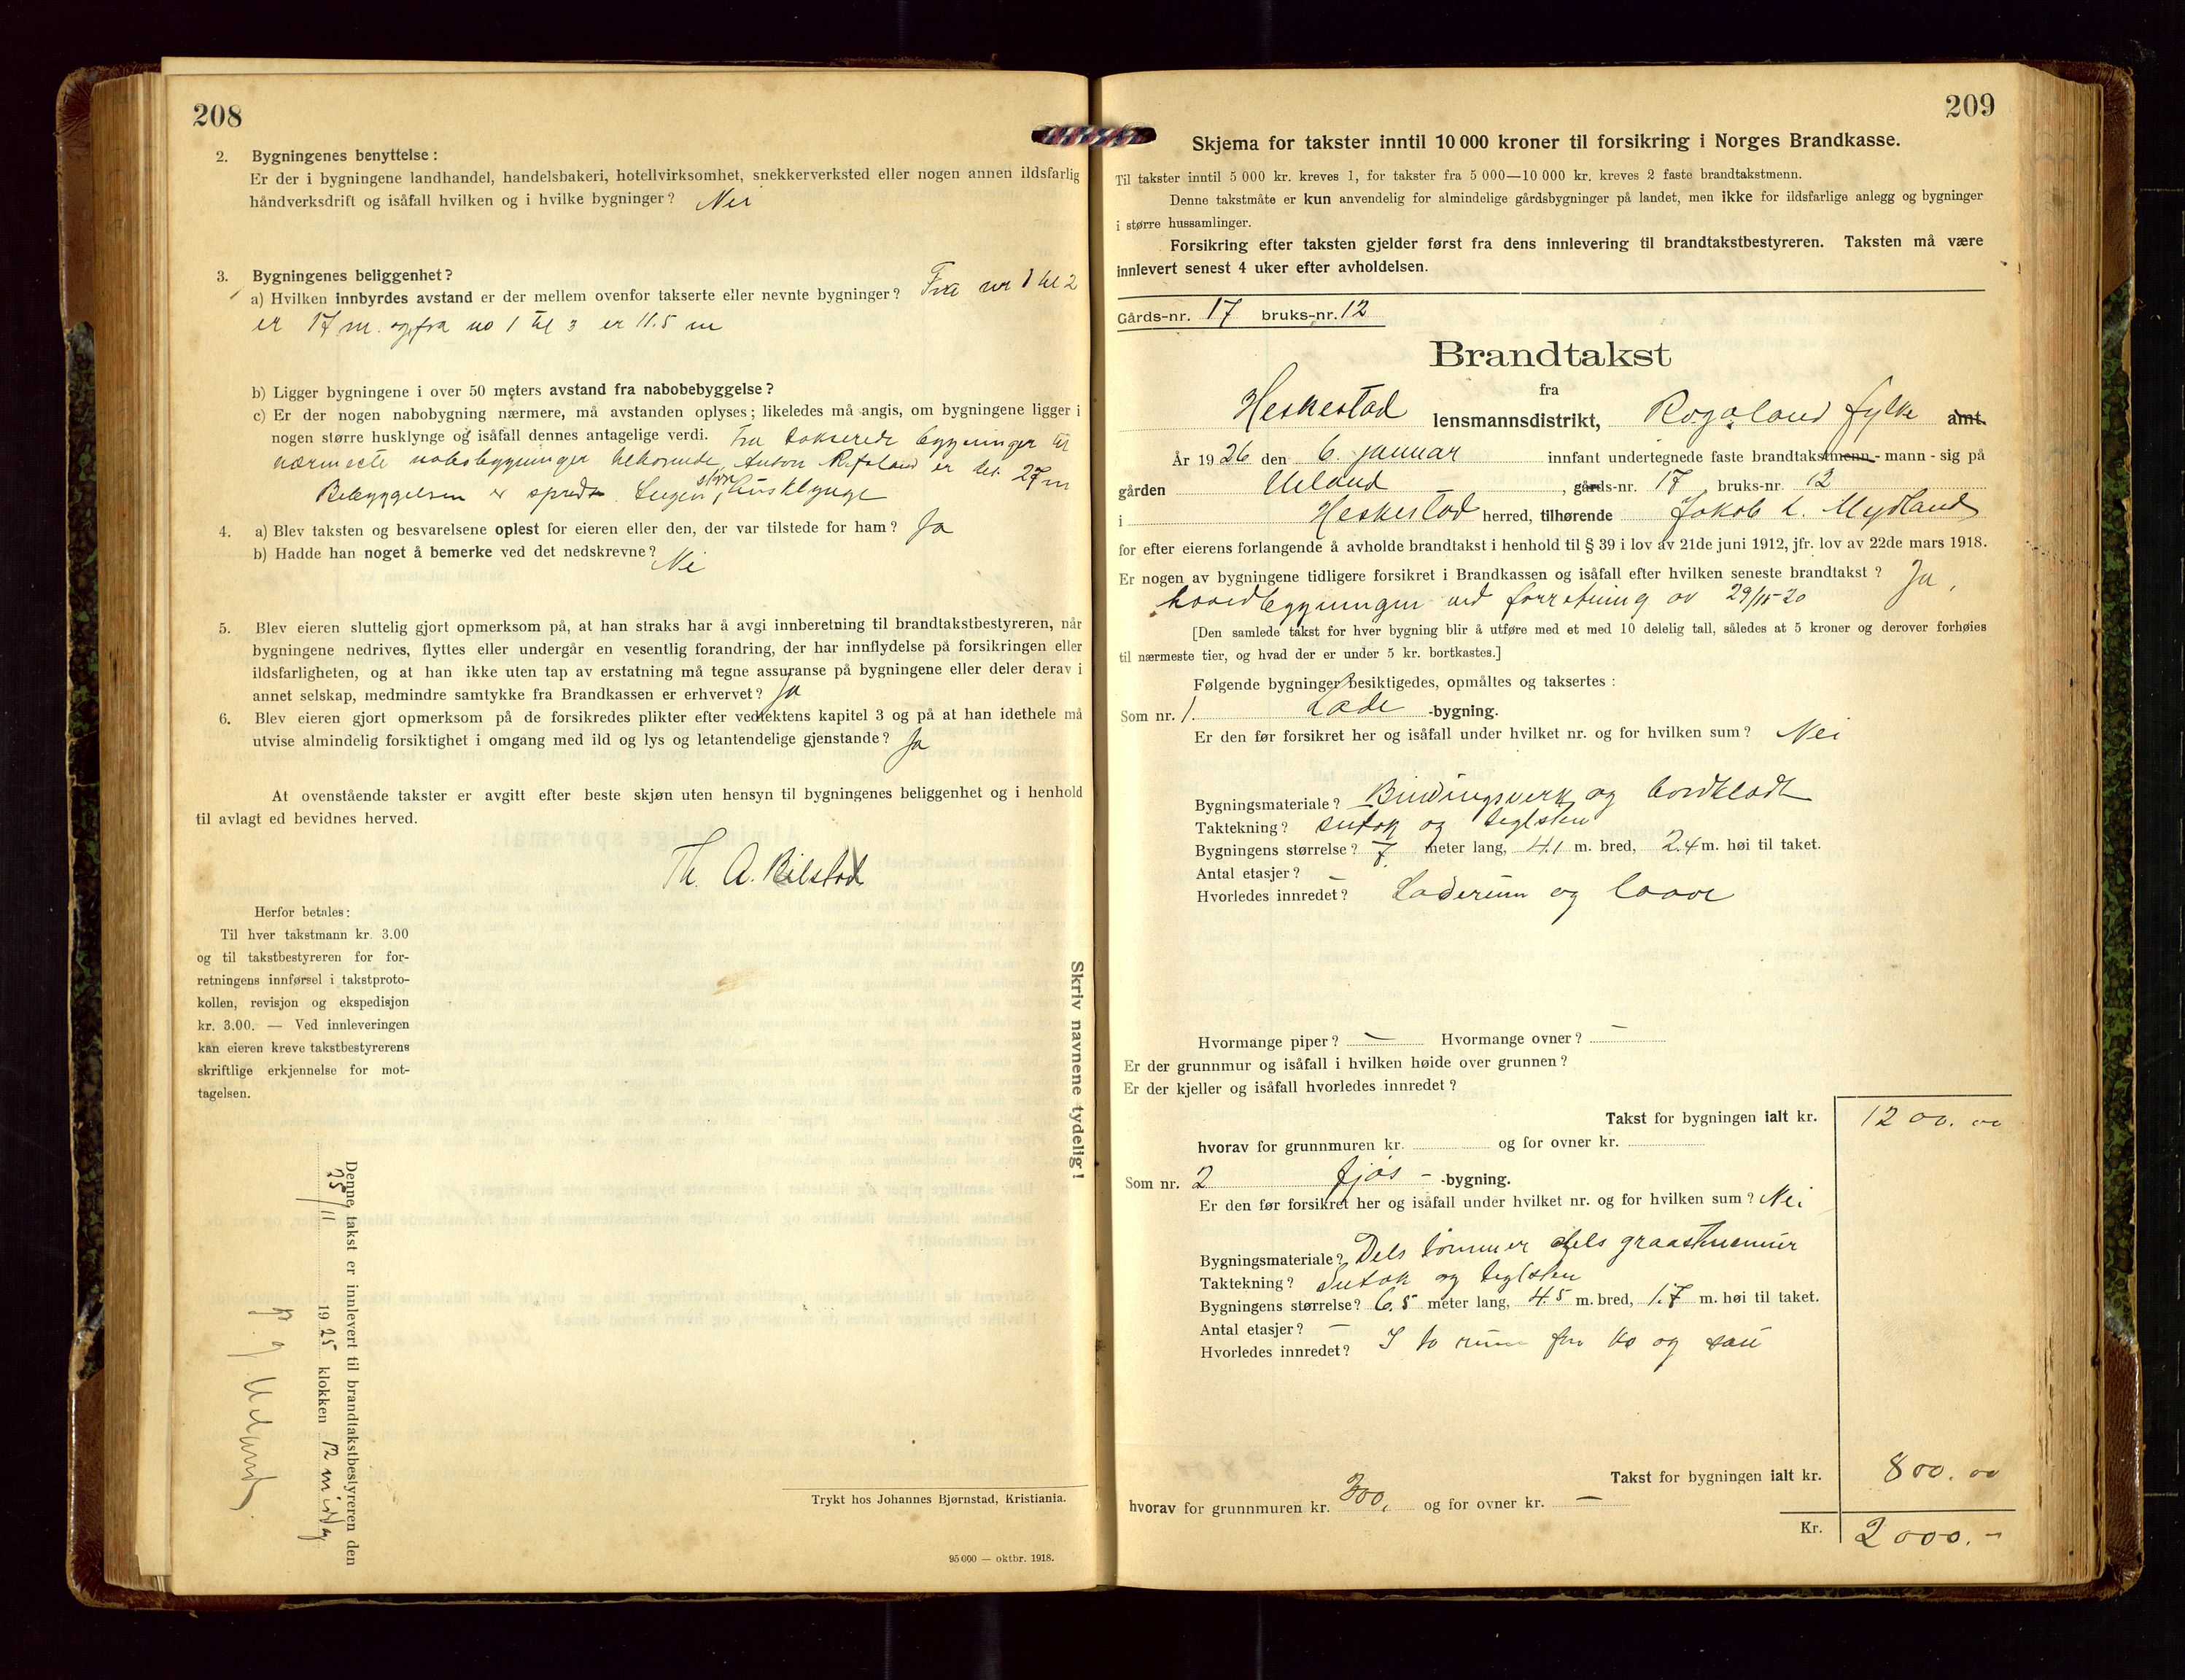 208
2. Bygningenes benyttelse:
Er der i bygningene landhandel, handelsbakeri, hotellvirksomhet, snekkerverksted eller nogen annen ildsfarlig
håndverksdrift og isåfall hvilken og i hvilke bygninger? Nei
3. Bygningenes beliggenhet?
a) Hvilken innbyrdes avstand er der mellem ovenfor takserte eller nevnte bygninger? Fra nr 1 til 2
er 17 m. og fra no 1 til 3 er 11.5 m
b) Ligger bygningene i over 50 meters avstand fra nabobebyggelse?
c) Er der nogen nabobygning nærmere, må avstanden oplyses; likeledes må angis, om bygningene ligger i
nogen større husklynge og isåfall dennes antagelige verdi. Fra takserede bygninger til
nærmeste nabobygninger tilhørende Anton Refsland er det 27 m
Bebyggelsen er spredt. Ingen større husklynge
4. a) Blev taksten og besvarelsene oplest for eieren eller den, der var tilstede for ham? Ja
b) Hadde han noget å bemerke ved det nedskrevne? Nei
5. Blev eieren sluttelig gjort opmerksom på, at han straks har å avgi innberetning til brandtakstbestyreren, når
bygningene nedrives, flyttes eller undergår en vesentlig forandring, der har innflydelse på forsikringen eller
ildsfarligheten, og at han ikke uten tap av erstatning må tegne assuranse på bygningene eller deler derav i
annet selskap, medmindre samtykke fra Brandkassen er erhvervet? Ja
6. Blev eieren gjort opmerksom på de forsikredes plikter efter vedtektens kapitel 3 og på at han idethele må
utvise almindelig forsiktighet i omgang med ild og lys og letantendelige gjenstande? Ja
At ovenstående takster er avgitt efter beste skjøn uten hensyn til bygningenes beliggenhet og i henhold
til avlagt ed bevidnes herved.
Th. A. Bilstad
Herfor betales:
Til hver takstmann kr. 3.00
og til takstbestyreren for for-
retningens innførsel i takstproto-
kollen, revisjon og ekspedisjon
kr. 3.00. — Ved innleveringen
kan eieren kreve takstbestyrerens
skriftlige erkjennelse for mot-
tagelsen.
Skriv navnene tydelig!
Denne takst er innlevert til brandtakstbestyreren den
25/11 1925 klokken 12 middag
Trykt hos Johannes Bjørnstad, Kristiania.
95 000 — oktbr. 1918.
209
Skjema for takster inntil 10 000 kroner til forsikring i Norges Brandkasse.
Til takster inntil 5 000 kr. kreves 1, for takster fra 5 000—10 000 kr. kreves 2 faste brandtakstmenn.
Denne takstmåte er kun anvendelig for almindelige gårdsbygninger på landet, men ikke for ildsfarlige anlegg og bygninger
i større hussamlinger.
Forsikring efter taksten gjelder først fra dens innlevering til brandtakstbestyreren. Taksten må være
innlevert senest 4 uker efter avholdelsen.
Gårds-nr. 17 bruks-nr. 12
Brandtakst
fra
Heskestad lensmannsdistrikt, Rogaland fylke amt.
År 1926 den 6. januar innfant undertegnede faste brandtakstmenn - mann - sig på
gården Ueland, gårds-nr. 17, bruks-nr. 12
i Heskestad herred, tilhørende Jakob L. Mydland
for efter eierens forlangende å avholde brandtakst i henhold til § 39 i lov av 21de juni 1912, jfr. lov av 22de mars 1918.
Er nogen av bygningene tidligere forsikret i Brandkassen og isåfall efter hvilken seneste brandtakst? Ja,
hovedbygningen ved forretning av
[Den samlede takst for hver bygning blir å utføre med et med 10 delelig tall, således at 5 kroner og derover forhøies
til nærmeste tier, og hvad der er under 5 kr. bortkastes.]
Følgende bygninger besiktigedes, opmåltes og taksertes:
Som nr. 1. Lade -bygning.
Er den før forsikret her og isåfall under hvilket nr. og for hvilken sum? Nei
Bygningsmateriale? Bindingsverk og bordklædt
Taktekning? sutak og teglsten
Bygningens størrelse? 7 meter lang, 4.1 m. bred, 2.4 m. høi til taket.
Antal etasjer? —
Hvorledes innredet? Laderum og laave
Hvormange piper? — Hvormange ovner? —
Er der grunnmur og isåfall i hvilken høide over grunnen?
Er der kjeller og isåfall hvorledes innredet?
Takst for bygningen ialt kr. 1200.00
hvorav for grunnmuren kr. og for ovner kr.
Som nr. 2 fjøs - -bygning.
Er den før forsikret her og isåfall under hvilket nr. og for hvilken sum? Nei
Bygningsmateriale? Dels tømmer dels graastensmur
Taktekning? Sutak og teglsten
Bygningens størrelse? 6.5 meter lang, 4.5 m. bred, 1.7 m. høi til taket.
Antal etasjer? —
Hvorledes innredet? I to rum for ko og sau
Takst for bygningen ialt kr. 800.00
hvorav for grunnmuren kr. 300, og for ovner kr. —
Kr. 2000.-